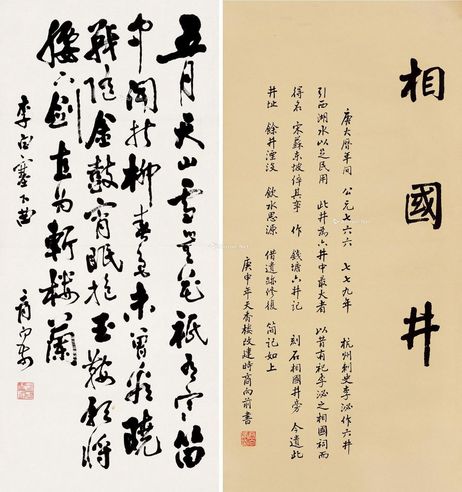 相國井
唐大曆年間 公元七六六 七七九年 杭州刺史李泌作六井
引西湖水以足民用 此井為六井中最大者 以昔有祀李泌之相國祠而
得名 宋蘇東坡倅其事 作 錢塘六井記 刻石相國井旁 今遺此
井址 餘井湮沒 飲水思源 借遺跡修復 簡記如上
庚申年天香樓改建時商向前書
五月天山雪無花祇有寒笛
中聞折柳春色未曾看曉
戰隨金鼓宵眠抱玉鞍願將
腰下劍直為斬樓蘭
李白塞下曲
商向前